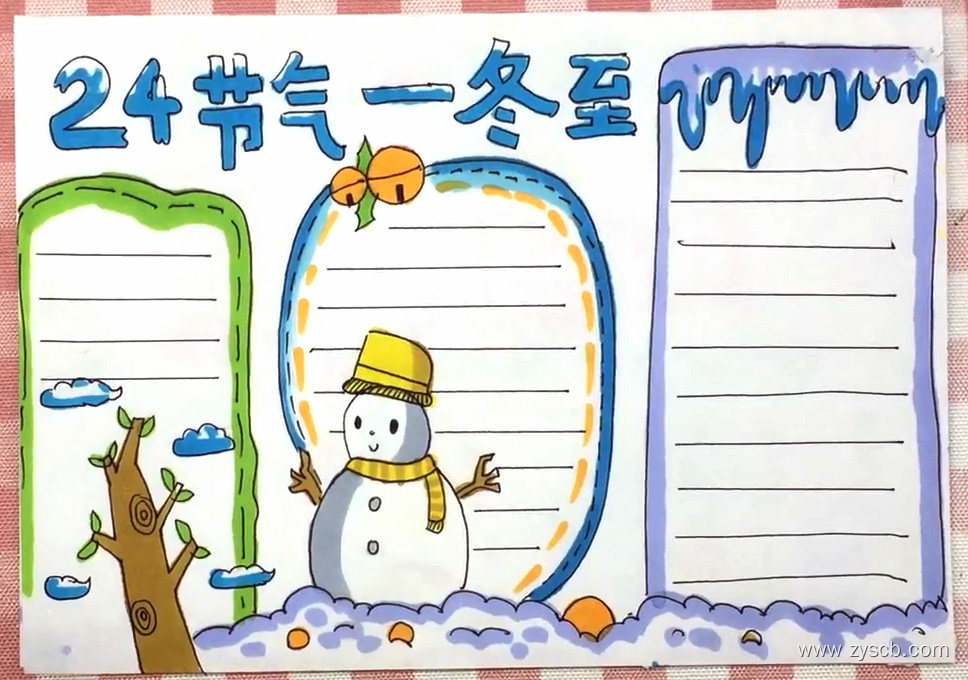 24节气一冬至
www.zyscb.com